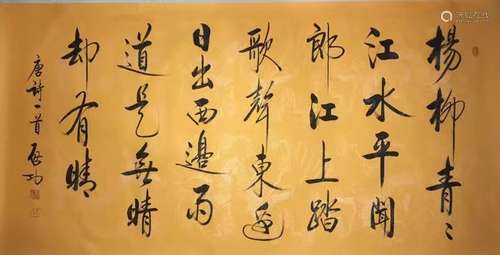 楊柳青〻
江水平聞
郎江上踏
歌聲東邊
日出西邊雨
道是無晴
却有晴
唐詩一首 啟功